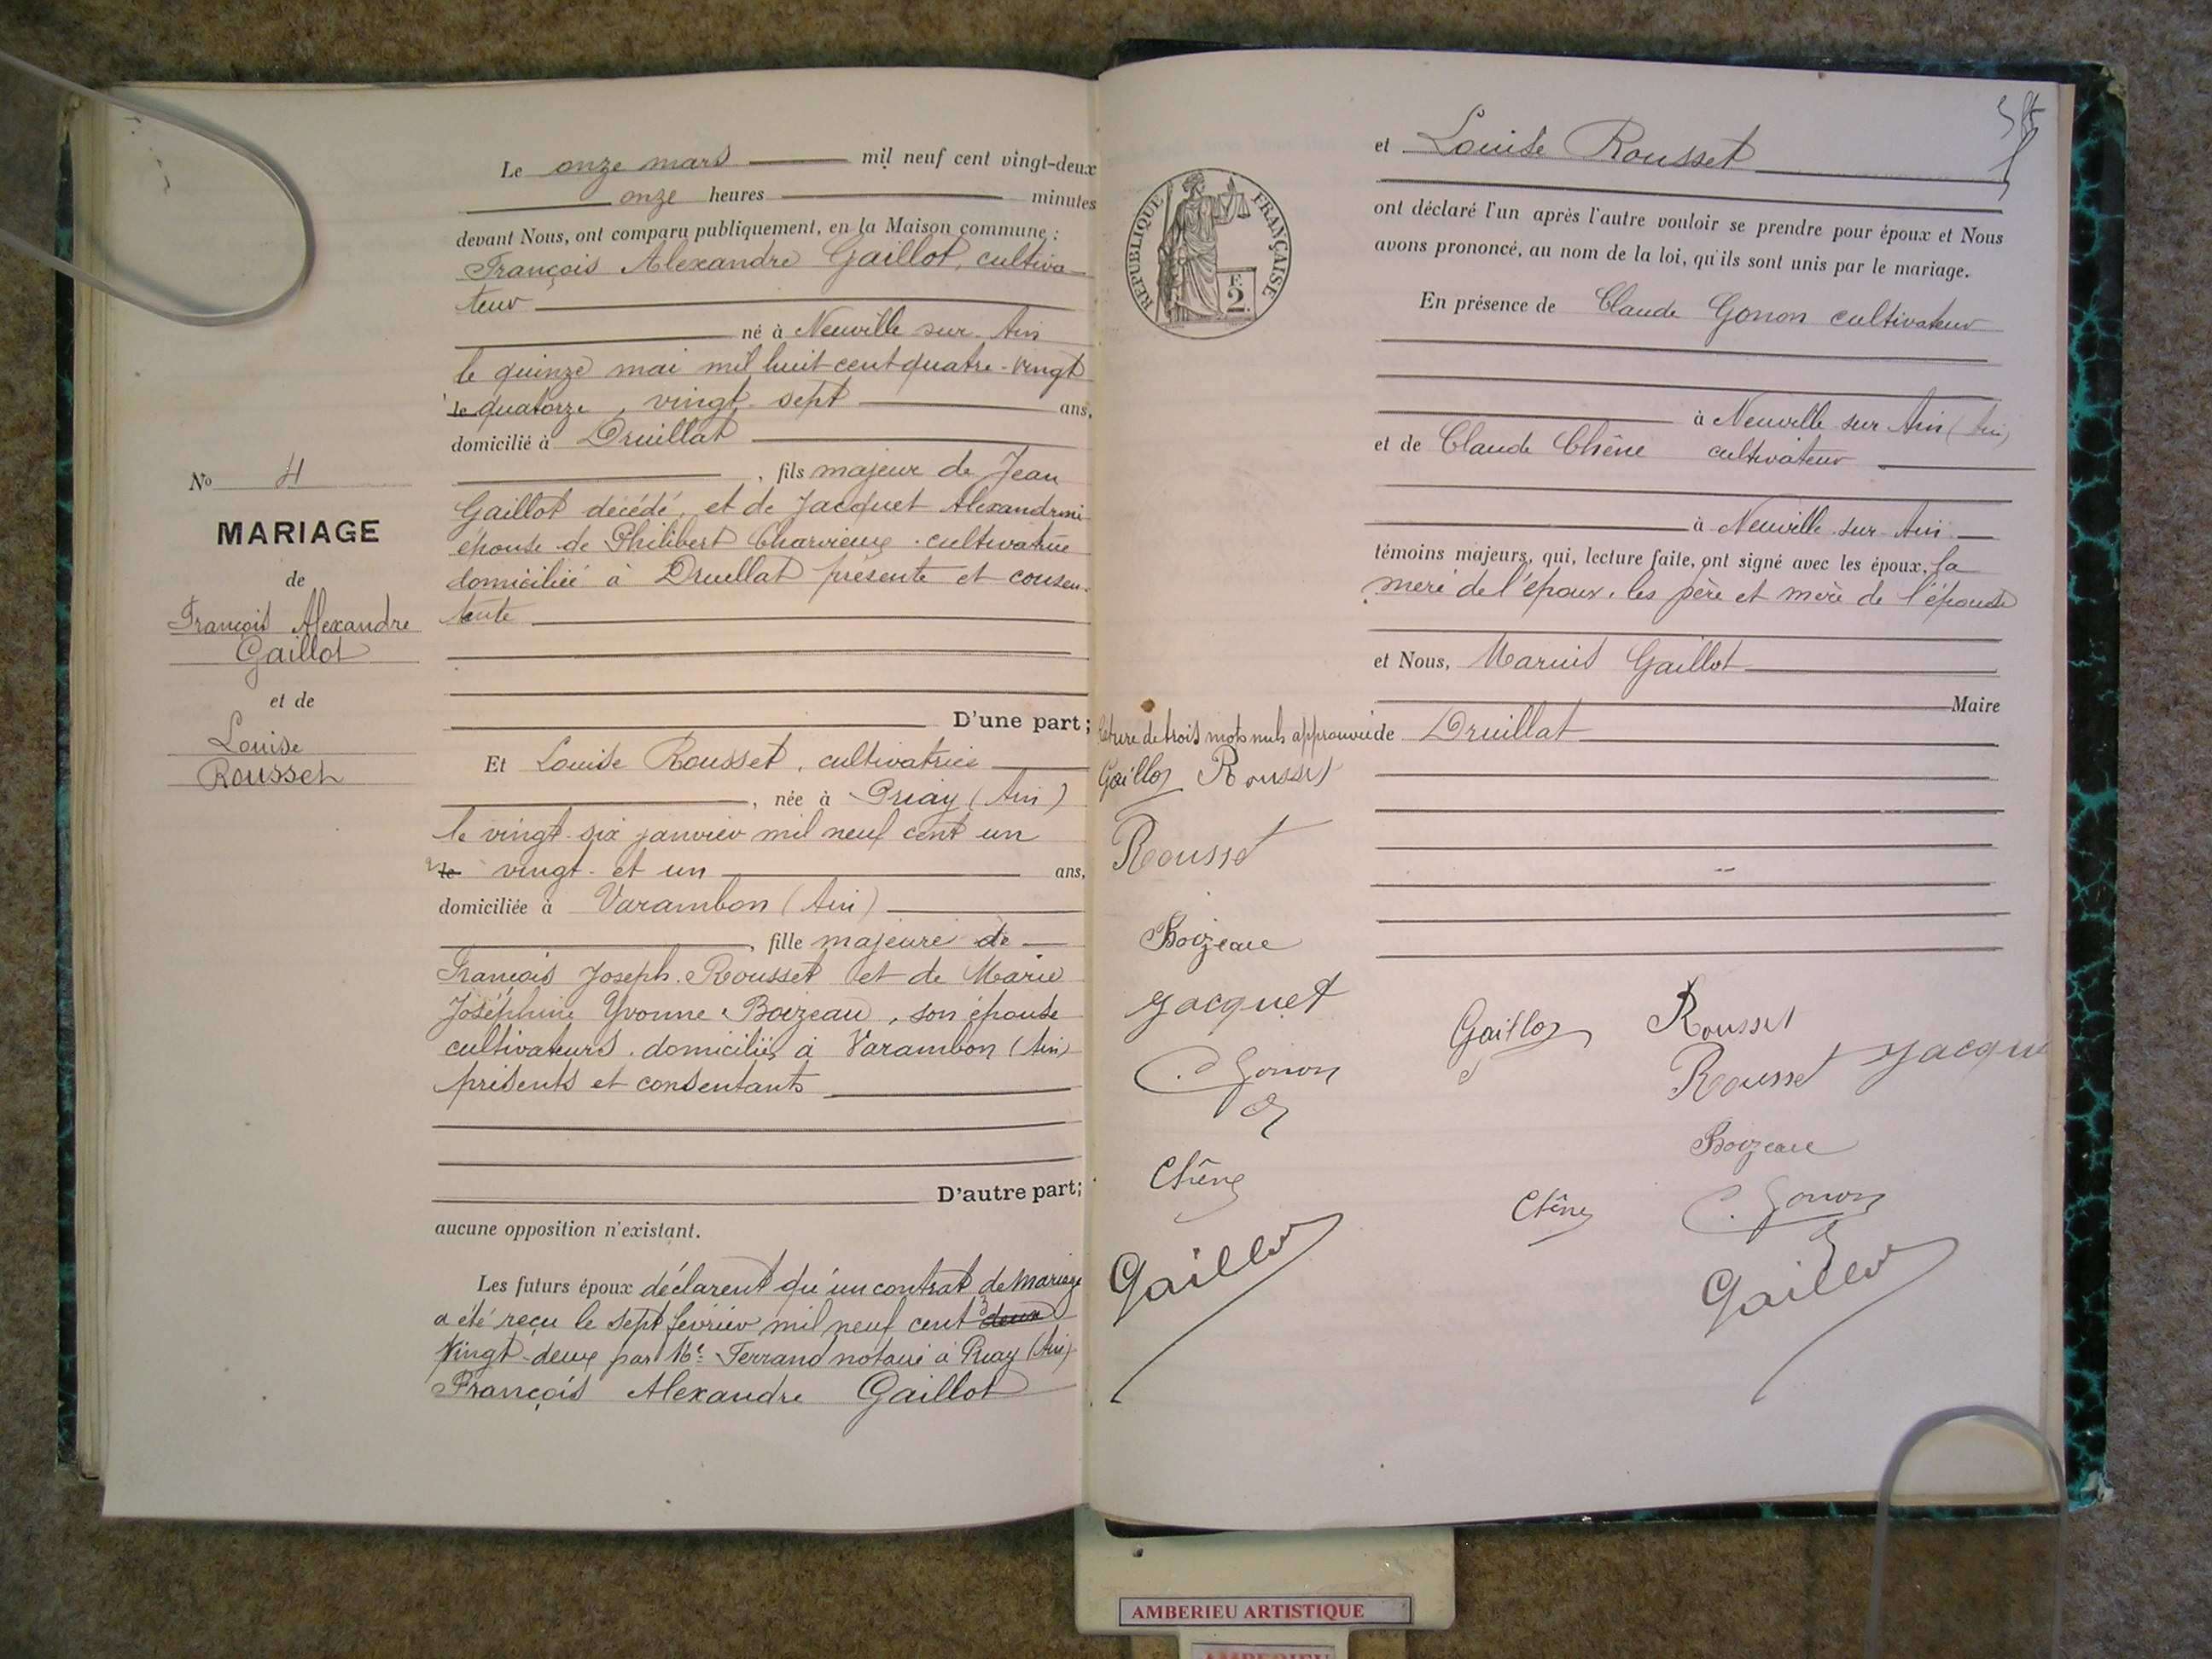 No 4
MARIAGE
de
François Alexandre
Gaillot
et de
Louise
Rousset
Le onze mars mil neuf cent vingt-deux
onze heures minutes
devant Nous, ont comparu publiquement, en la Maison commune :
François Alexandre Gaillot, cultiva-
teur
né à Neuville sur Ain
le quinze mai mil huit cent quatre-vingt
le quatorze, vingt-sept ans,
domicilié à Druillat
, fils majeur de Jean
Gaillot décédé, et de Jacquet Alexandrine
épouse de Philibert Charvieux cultivatrice
domiciliée à Druillat présente et consen-
tente
D'une part;
Et Louise Rousset, cultivatrice
, née à Priay (Ain)
le vingt-six janvier mil neuf cent un
le vingt-et un ans,
domiciliée à Varambon (Ain)
, fille majeure de
François Joseph Rousset et de Marie
Joséphine Yvonne Boizeau, son épouse
cultivateurs domiciliés à Varambon (Ain)
présents et consentants
D'autre part;
aucune opposition n'existant.
Les futurs époux déclarent qu'un contrat de Mariage
a été reçu le sept février mil neuf cent deux
Vingt-deux par Me Ferrand notaire à Priay (Ain)
François Alexandre Gaillot
RÉPUBLIQUE FRANÇAISE
F.
2.
et Louise Rousset
ont déclaré l'un après l'autre vouloir se prendre pour époux et Nous
avons prononcé, au nom de la loi, qu'ils sont unis par le mariage.
En présence de Claude Gonon cultivateur
à Neuville sur Ain (Ain)
et de Claude Chêne cultivateur
à Neuville-sur-Ain
témoins majeurs, qui, lecture faite, ont signé avec les époux, la
mère de l'époux, les père et mère de l'épouse
et Nous, Marius Gaillot
Maire
de Druillat
de trois mots nuls approuvée
Gaillot Rousset
Rousset
Boizeau
Jacquet
C. Gonon
Chêne
Gaillot
Gaillot Rousset
Rousset Jacque
Boizeau
Chêne C. Gonon
Gaillot
AMBERIEU ARTISTIQUE
AMBERIEU